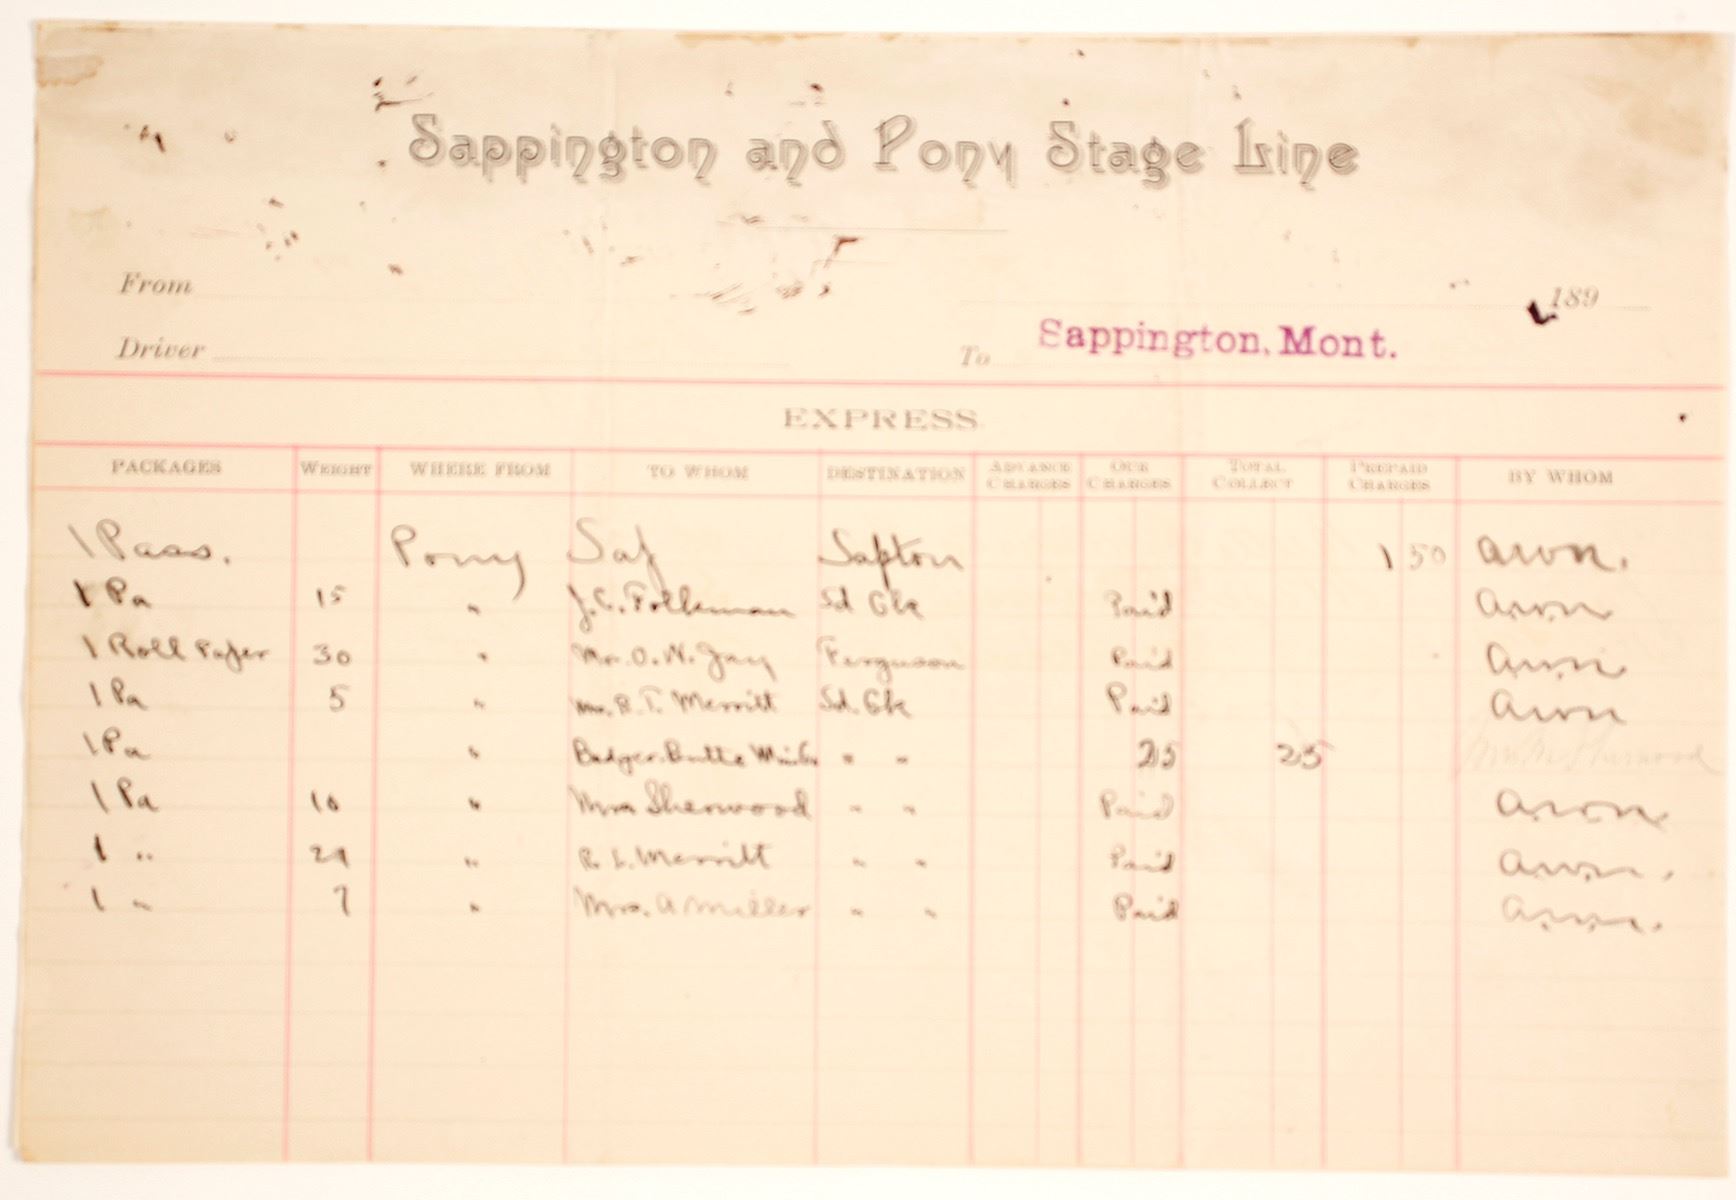 Sappington and Pony Stage Line
From 189
Driver To Sappington, Mont.
EXPRESS
PACKAGES WEIGHT WHERE FROM TO WHOM DESTINATION ADVANCE CHARGES OUR CHARGES TOTAL COLLECT PREPAID CHARGES BY WHOM
1 Pass. Pony Sap Sapton 1 50
1 Pa 15 " J.C. Folkman Sd Gk Paid
1 Roll Paper 30 " Mr. O.W. Jay Ferguson Paid
1 Pa 5 " Merritt Sd. Gk Paid
1 Pa " Badger Butte " " 25 25 Sherwood
1 Pa 10 " Mrs Sherwood " " Paid
1 " " R. L. Merritt " " Paid
1 " 7 " Mrs. A Miller " " Paid